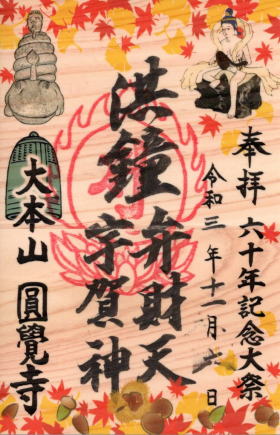 奉拝 六十年記念大祭
令和三年十一月六日
洪鐘弁財天
宇賀神
大本山 圓覺寺